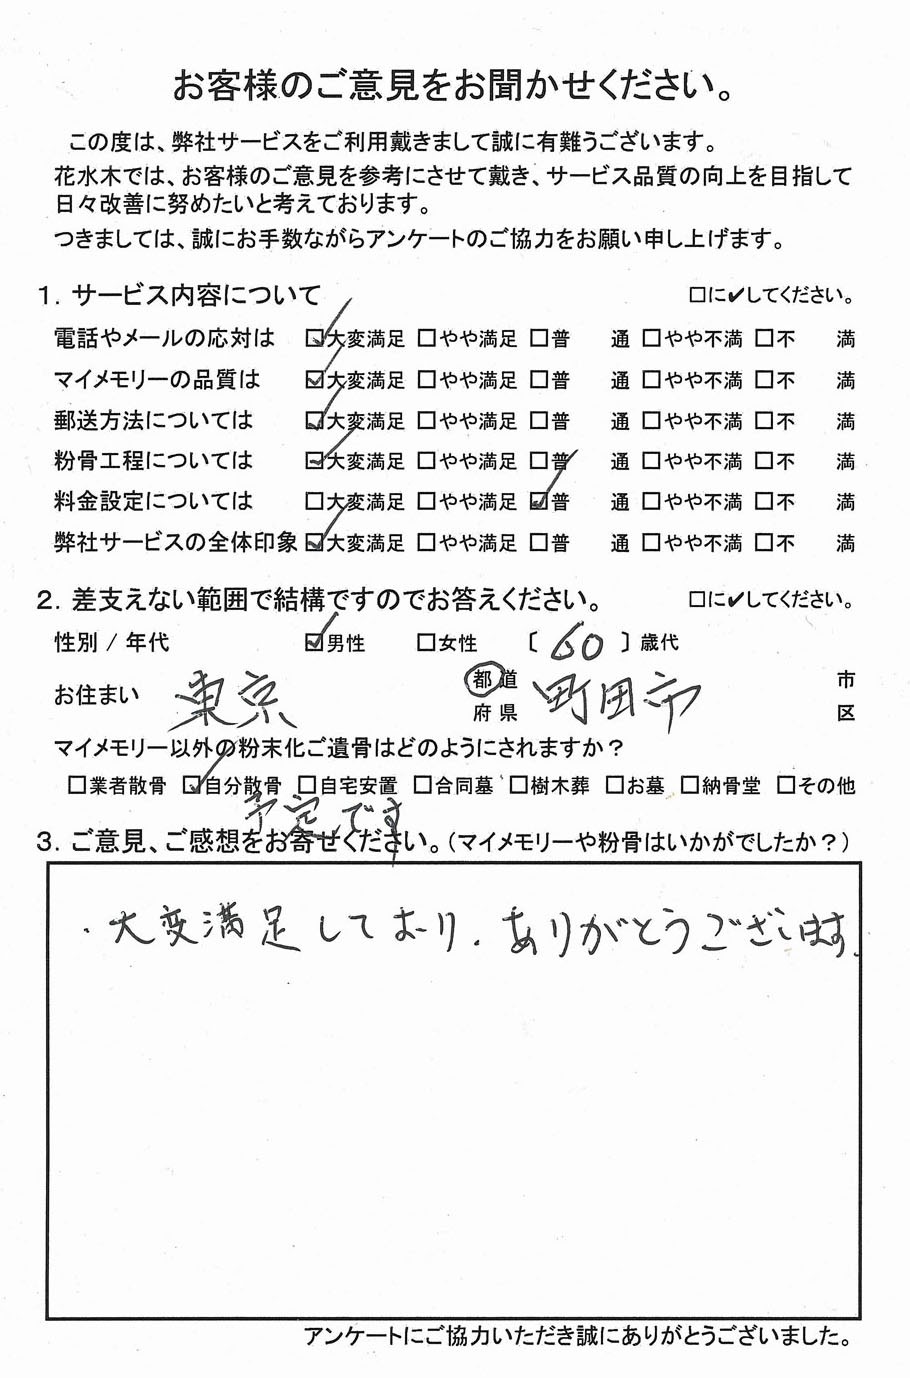 お客様のご意見をお聞かせください。
この度は、弊社サービスをご利用戴きまして誠に有難うございます。
花水木では、お客様のご意見を参考にさせて戴き、サービス品質の向上を目指して
日々改善に努めたいと考えております。
つきましては、誠にお手数ながらアンケートのご協力をお願い申し上げます。
1. サービス内容について □に✔してください。
電話やメールの応対は ☑大変満足 □やや満足 □普 通 □やや不満 □不 満
マイメモリーの品質は ☑大変満足 □やや満足 □普 通 □やや不満 □不 満
郵送方法については ☑大変満足 □やや満足 □普 通 □やや不満 □不 満
粉骨工程については ☑大変満足 □やや満足 □普 通 □やや不満 □不 満
料金設定については □大変満足 □やや満足 ☑普 通 □やや不満 □不 満
弊社サービスの全体印象 ☑大変満足 □やや満足 □普 通 □やや不満 □不 満
2. 差支えない範囲で結構ですのでお答えください。 □に✔してください。
性別 / 年代 ☑男性 □女性 〔 60 〕歳代
お住まい 東京 都道府県 町田市 市区
マイメモリー以外の粉末化ご遺骨はどのようにされますか？
□業者散骨 ☑自分散骨 □自宅安置 □合同墓 □樹木葬 □お墓 □納骨堂 □その他
予定です
3. ご意見、ご感想をお寄せください。(マイメモリーや粉骨はいかがでしたか？)
・大変満足しており、ありがとうございます。
アンケートにご協力いただき誠にありがとうございました。